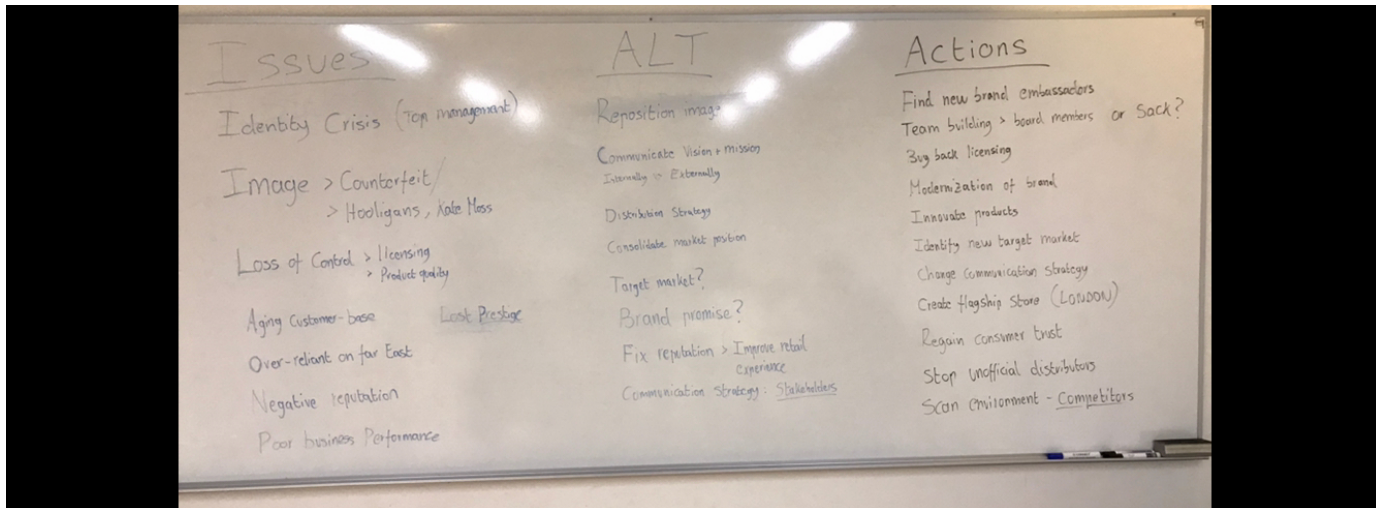 Issues
Identity Crisis (Top management)
Image > Counterfeit/
> Hooligans, Kate Moss
Loss of Control > licensing
> Product quality
Aging Customer-base
Lost Prestige
Over-reliant on far East
Negative reputation
Poor business Performance
ALT
Reposition image
Communicate Vision + mission
Internally > Externally
Distribution Strategy
Consolidate market position
Target market?
Brand promise?
Fix reputation > Improve retail
experience
Communication Strategy: Stakeholders
Actions
Find new brand embassadors
Team building > board members or Sack?
Buy back licensing
Modernization of brand
Innovate products
Identify new target market
Change communication strategy
Create flagship Store (LONDON)
Regain consumer trust
Stop unofficial distributors
Scan environment - Competitors